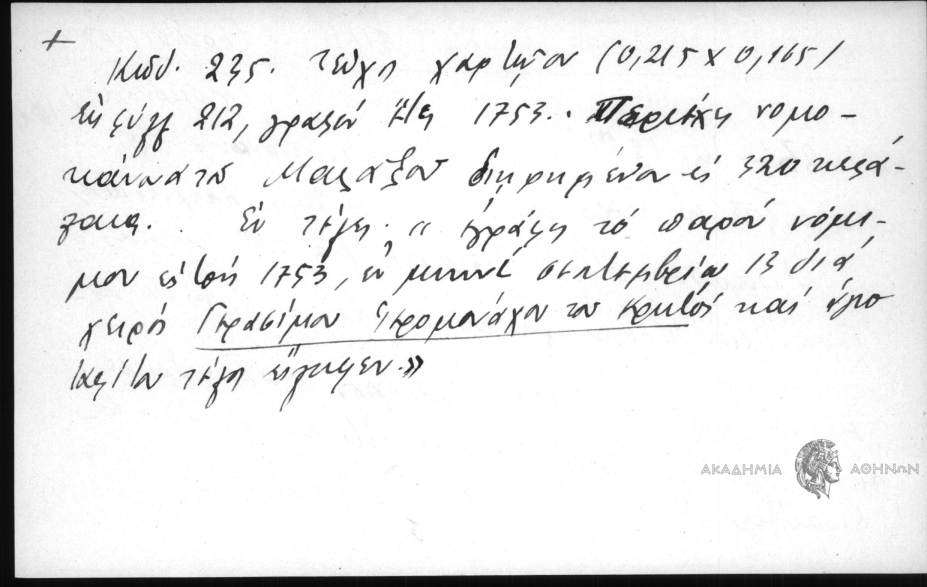 +
Κωδ. 235. τεύχη χαρτῶον (0,215 x 0,165)
ἐκ φύλλ 212, γραφέν 1753. Περιέχει νομο-
κάνονα τοῦ Μαλαξοῦ διῃρημένον εἰς 320 κεφά-
λαια. Ἐν τέλει. " ἐγράφη τὸ παρὸν νόμι-
μον εἰς 1753, ἐν μηνί σεπτεμβρίω 13 διά
χειρός Γερασίμου Ἱερομονάχου τοῦ Κρητός καί
τέλη εἴληφεν.»
ΑΚΑΔΗΜΙΑ ΑΘΗΝΩΝ